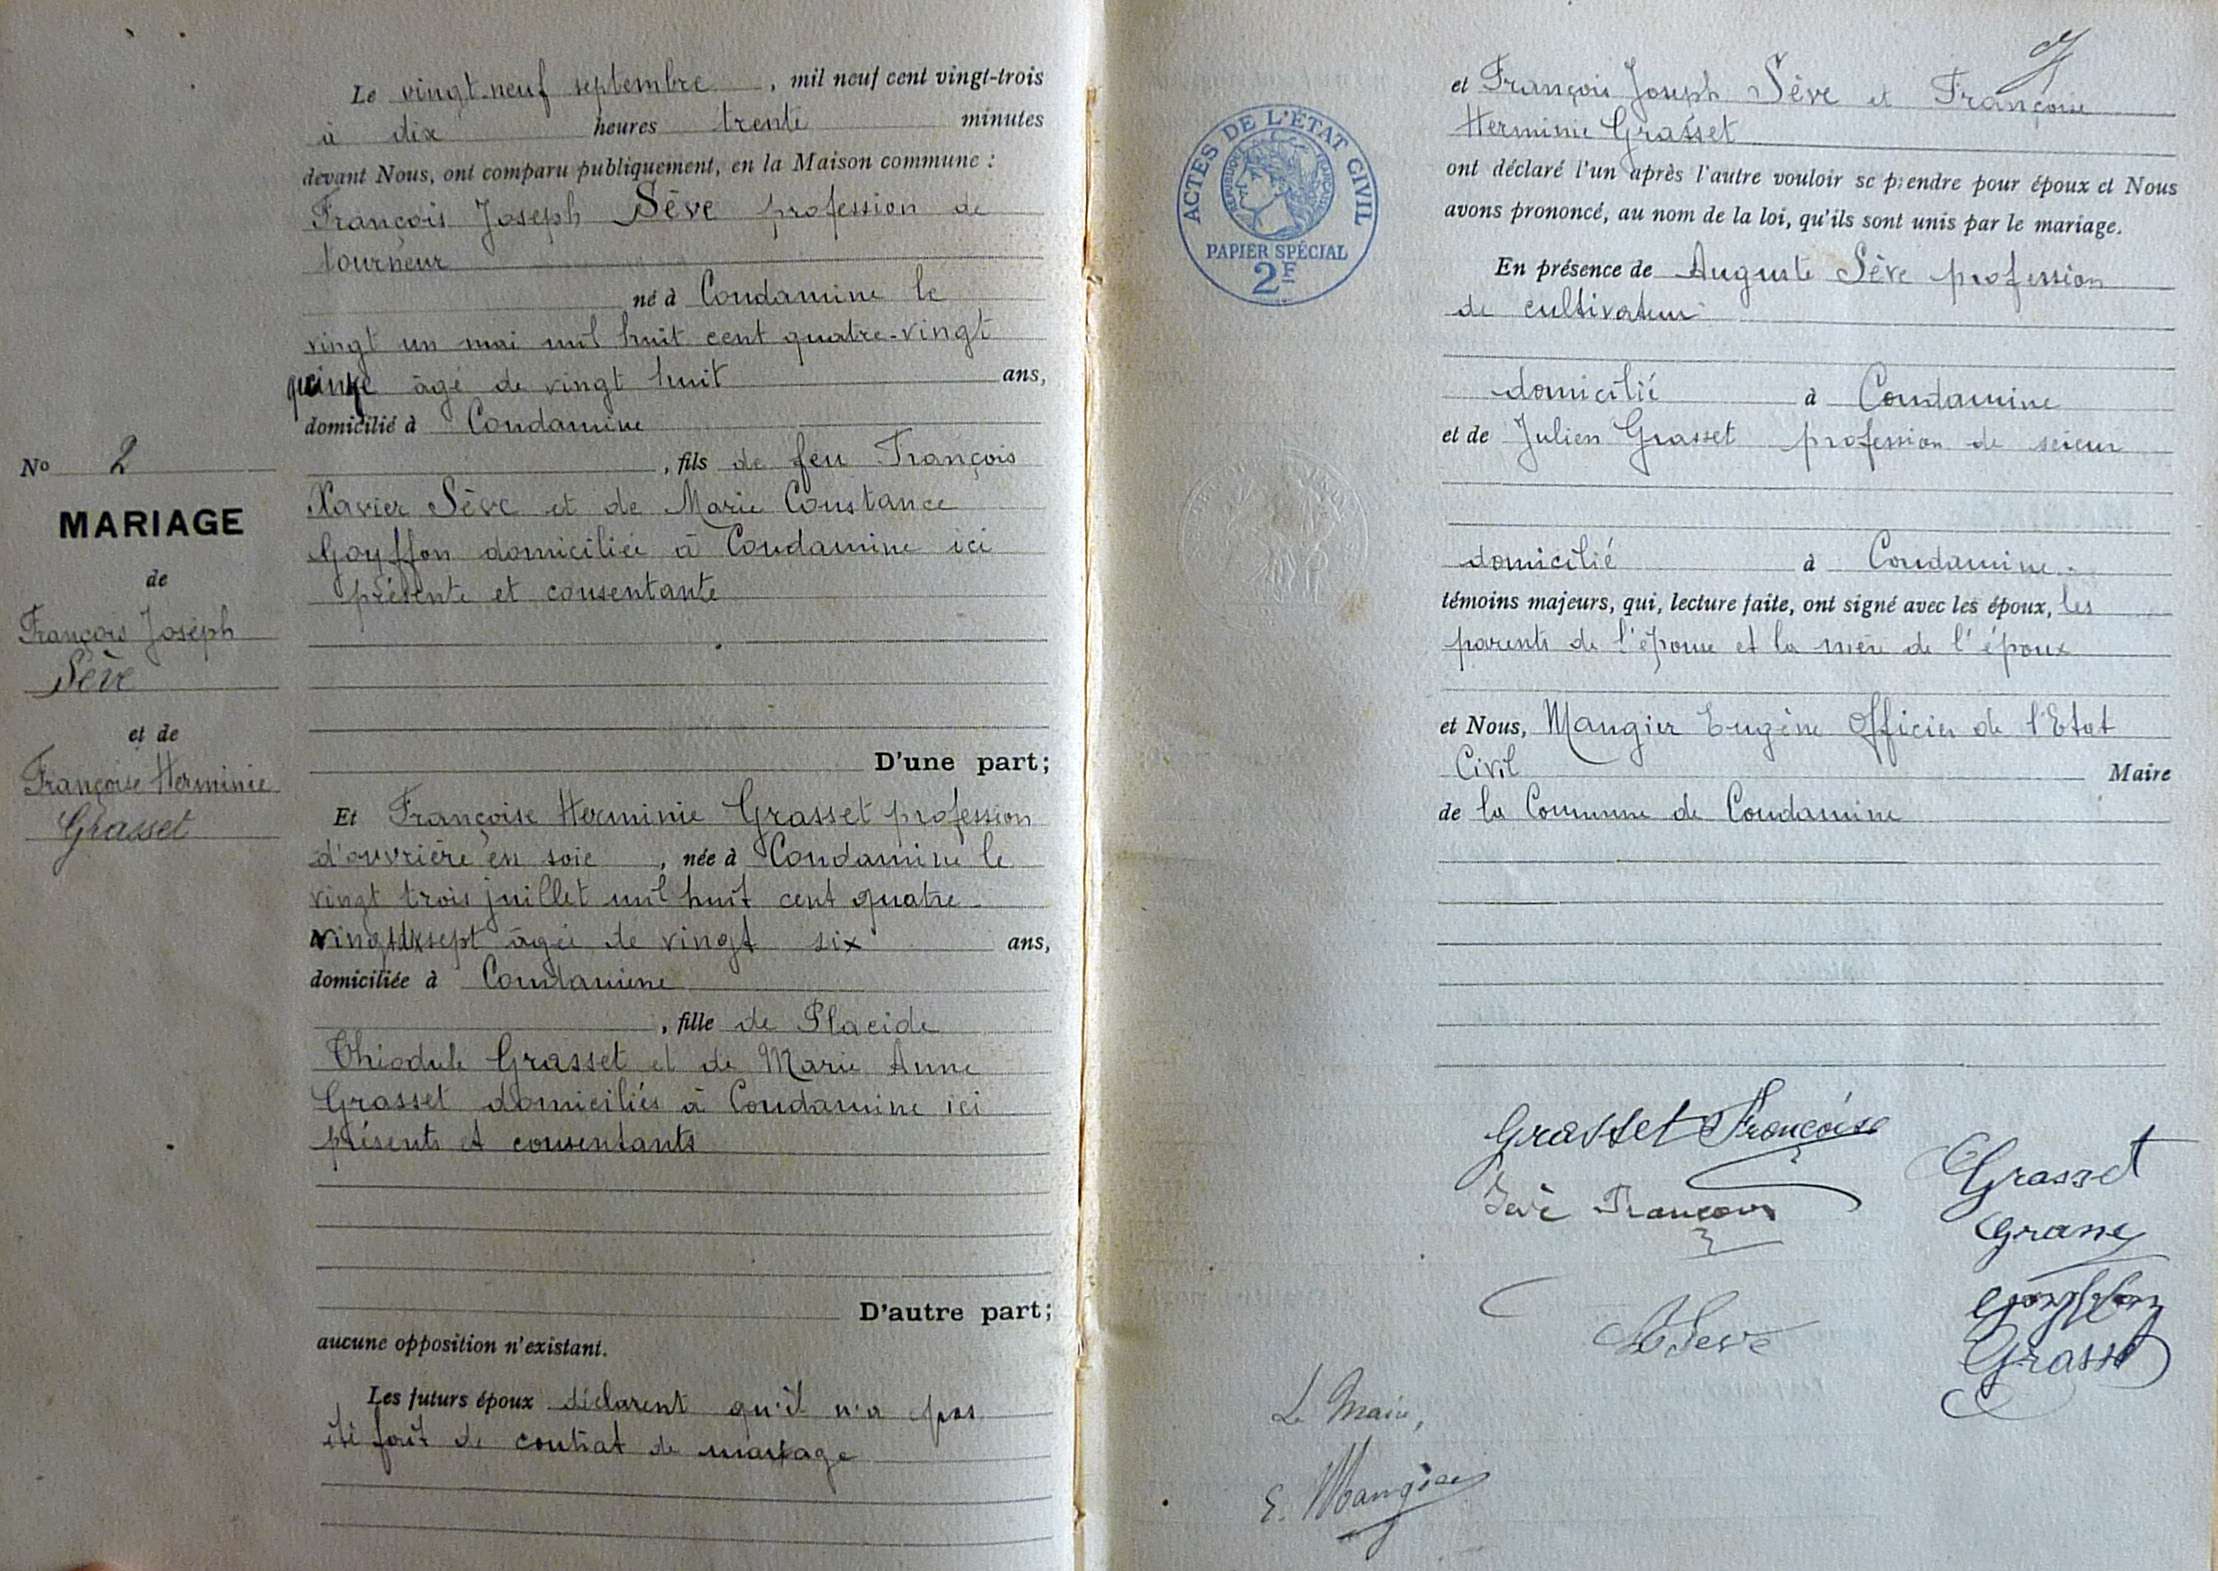 Le vingt-neuf septembre, mil neuf cent vingt-trois
à dix heures trente minutes
devant Nous, ont comparu publiquement, en la Maison commune :
François Joseph Sève profession de
tourneur
né à Condamine le
vingt un mai mil huit cent quatre-vingt
quinze âgé de vingt huit ans,
domicilié à Condamine
, fils de feu François
Xavier Sève et de Marie Constance
Goyffon domiciliée à Condamine ici
présente et consentante
D'une part;
Et Françoise Herminie Grasset profession
d'ouvrière en soie, née à Condamine le
vingt trois juillet mil huit cent quatre
vingt dix sept âgée de vingt six ans,
domiciliée à Condamine
, fille de Placide
Théodule Grasset et de Marie Anne
Grasset domiciliés à Condamine ici
présents et consentants
D'autre part;
aucune opposition n'existant.
Les futurs époux déclarent qu'il n'a pas
été fait de contrat de mariage
No 2
MARIAGE
de
François Joseph
Sève
et de
Françoise Herminie
Grasset
et François Joseph Sève et Françoise
Herminie Grasset
ont déclaré l'un après l'autre vouloir se prendre pour époux et Nous
avons prononcé, au nom de la loi, qu'ils sont unis par le mariage.
En présence de Auguste Sève profession
de cultivateur
domicilié à Condamine
et de Julien Grasset profession de scieur
domicilié à Condamine
témoins majeurs, qui, lecture faite, ont signé avec les époux, les
parents de l'épouse et la mère de l'époux
et Nous, Mangier Eugène Officier de l'Etat
Civil Maire
de la Commune de Condamine
ACTES DE L'ÉTAT CIVIL
RÉPUBLIQUE FRANÇAISE
PAPIER SPÉCIAL
2F
Grasset Françoise
Grasset
Sève François
Goyffon
Sève
Grasset
Le Maire,
E. Mangier